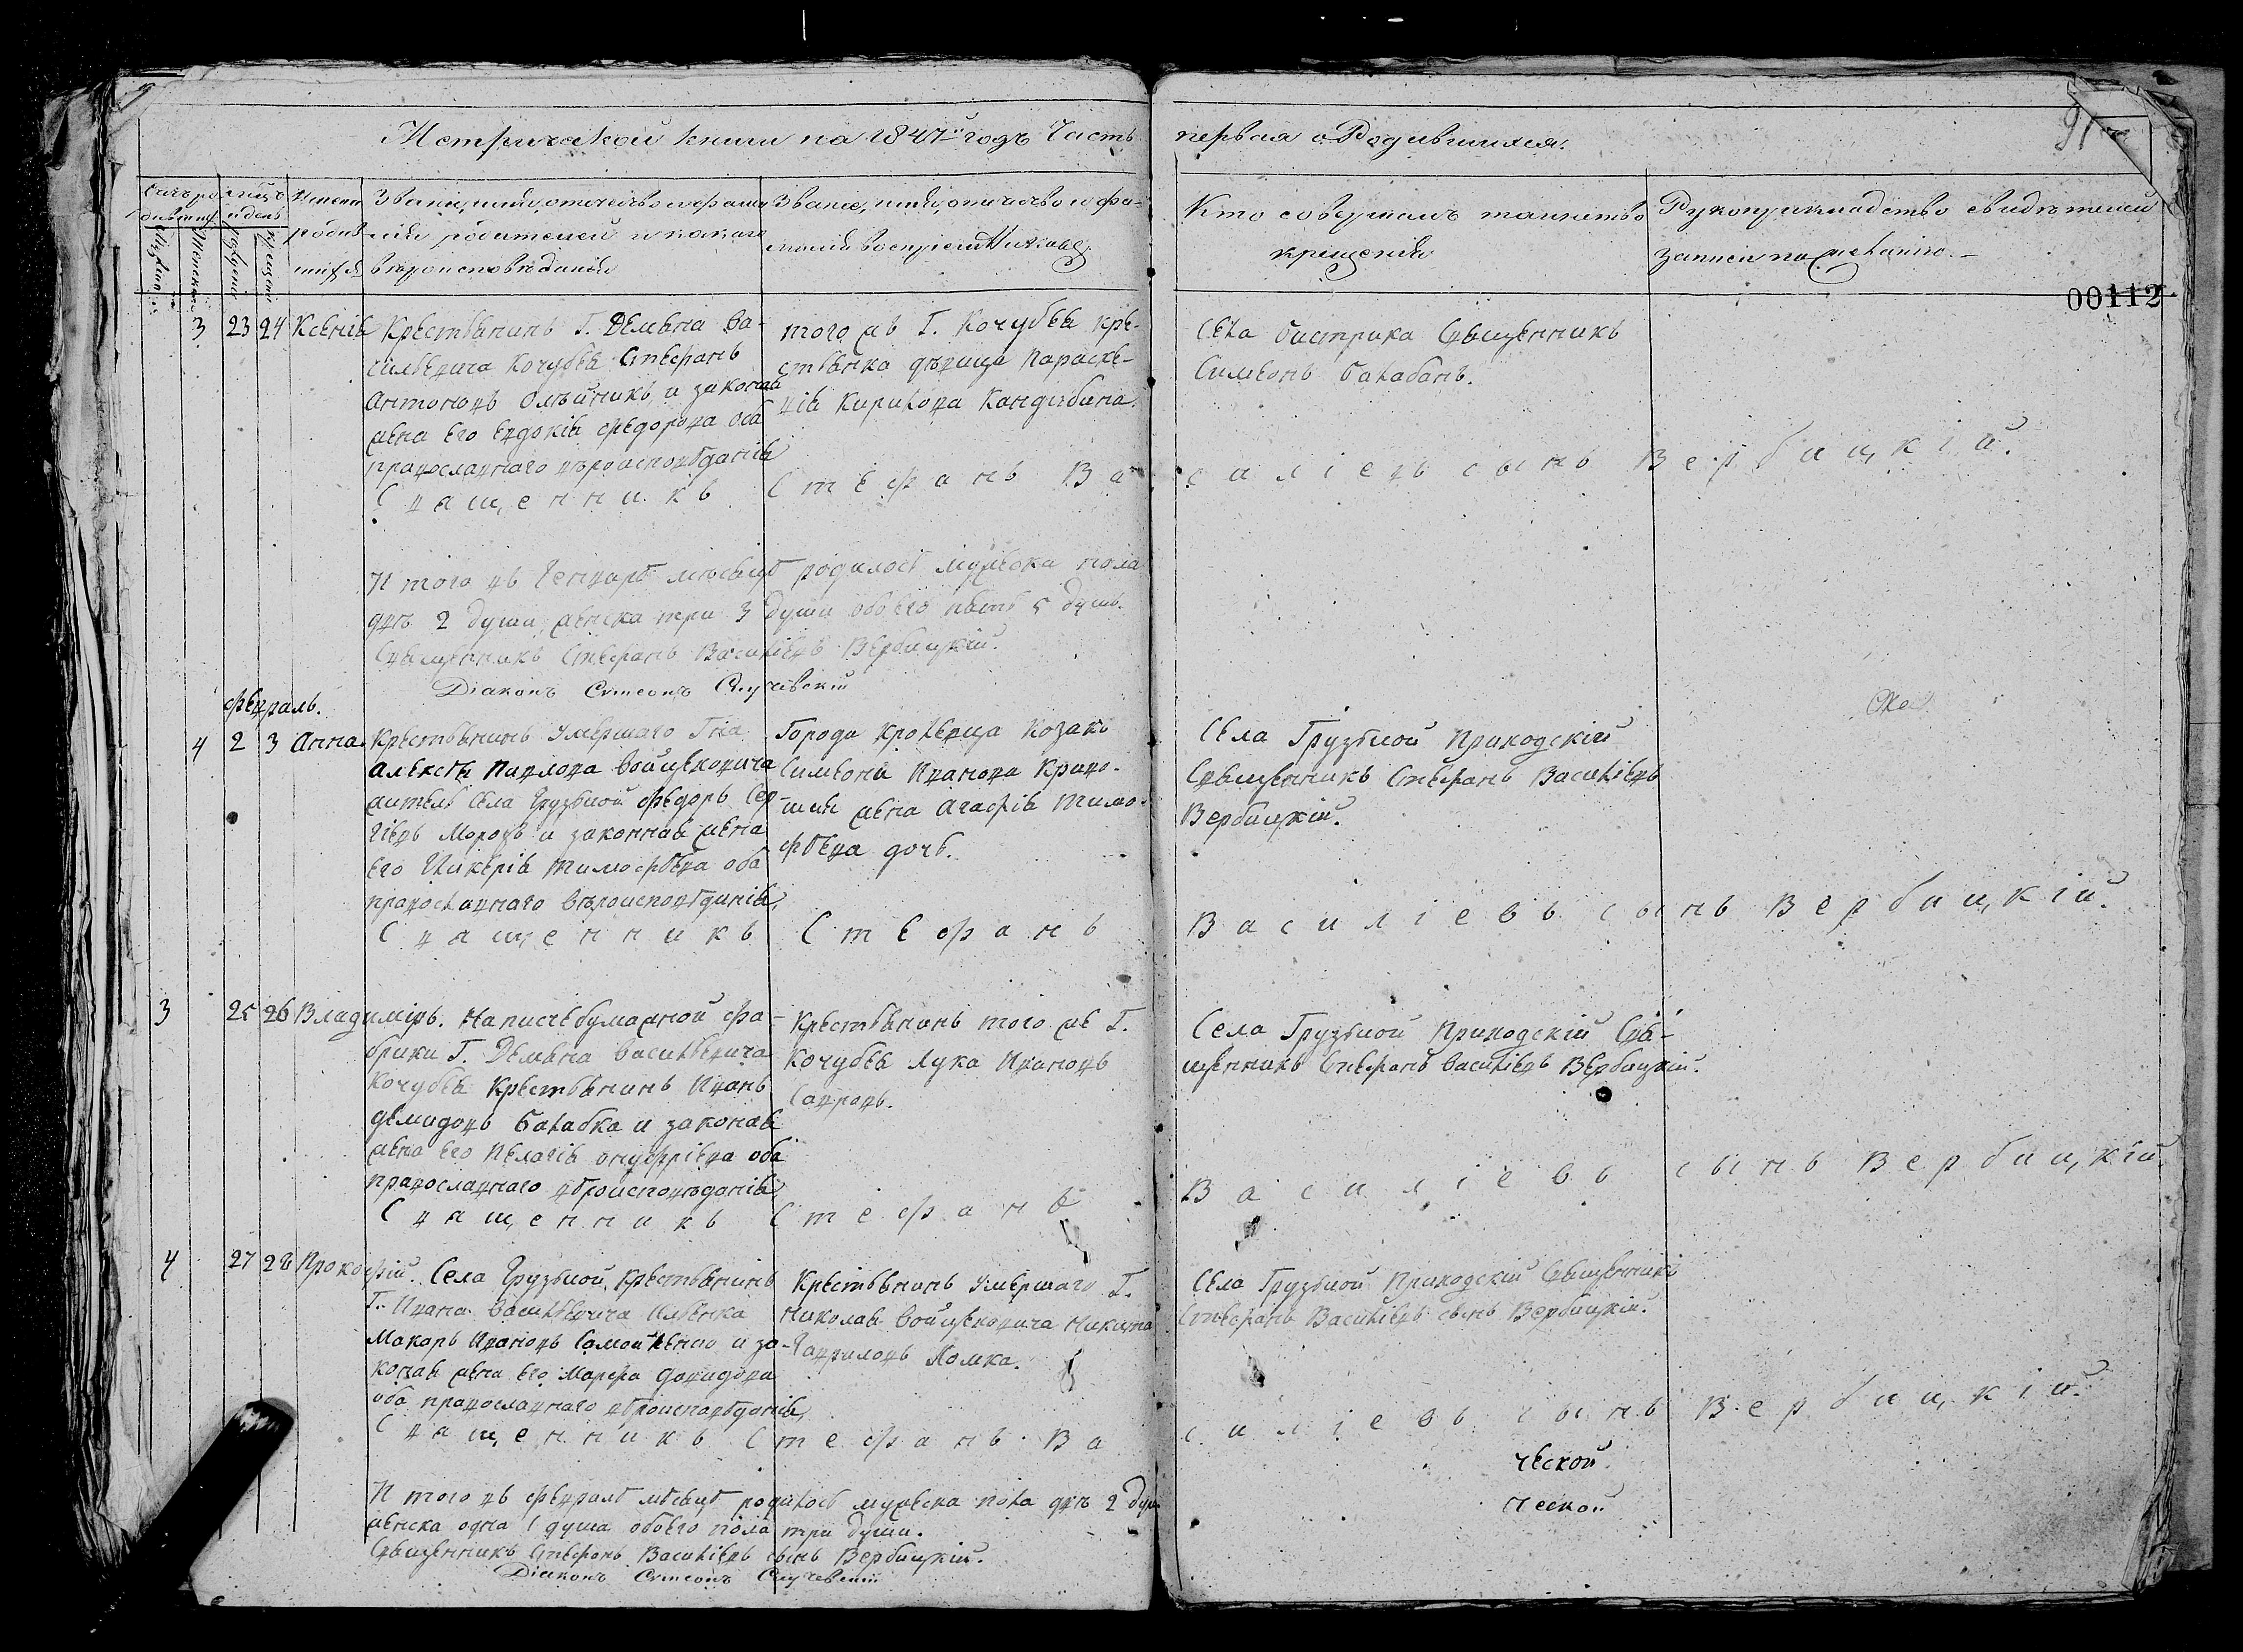 Метрической книги на 1847й годъ Часть первая о Родившихся.
91
Имена родив
Званіе, имя, отечество и фами
лія родителей и какаго
вероисповѣданія
Званіе, имя, отчество и фа-
милія воспріемниковъ
Кто совершалъ таинство
крещенія
Рукоприкладство свидѣтелей
записи по желанію.
00112
3 23 24 Ксенія
Крестьянинъ Г. Демьяна Ва-
сильевича Кочубея Стефанъ
Антоновъ Олѣйникъ и законая
жена его Евдокія Федорова оба
православнаго вѣроисповѣданія
того жъ Г. Кочубея кре-
стьянка дѣвица Параске-
вія Кирилова Кандыбина.
Села Бистрика Священникъ
Симеонъ Балабанъ.
Священникъ Стефанъ Василіевъ сынъ Вербицкій.
И того въ Генварѣ мѣсяцѣ родилось мужеска пола
двѣ 2 души, женска три 3 души обоего пять 5 душъ.
Священникъ Стефанъ Василіевъ Вербицкій.
Діаконъ Симеонъ
Февраль.
4 2 3 Анна
Крестьянинъ умершаго Г-на
Алексѣя Павлова Войцеховича
житель села Грузской Федоръ Сер
гіевъ Морозъ и законная жена
его Гликерія Тимофѣева оба
православнаго вѣроисповѣданія,
Города Кролевца Козака
Симеона Иванова Криво-
шеи жена Агафія Тимо-
фѣева дочь.
Села Грузской Приходскій
Священникъ Стефанъ Василіевъ
Вербицкій.
Священникъ Стефанъ Василіевъ сынъ Вербицкій.
3 25 26 Владиміръ.
На писчебумажной фа-
брики Г. Демьяна Васильевича
Кочубея Крестьянинъ Иванъ
Демидовъ Балабка и законая
жена его Пелагія Онуфріева оба
православнаго вѣроисповѣданія,
Крестьянинъ того же Г.
Кочубея Лука Ивановъ
Села Грузской Приходскій Свя-
щенникъ Стефанъ Василіевъ Вербицкій.
Священникъ Стефанъ Василіевъ сынъ Вербицкій.
4 27 28 Прокофій.
Села Грузской Крестьянинъ
Г. Ивана Васильевича
Макаръ Ивановъ Самойленко и за-
коная жена его Марфа Давидова
оба православнаго вѣроисповѣданія,
Крестьянинъ умершаго Г.
Николая Войцеховича Никита
Гавриловъ Ломка.
Села Грузской Приходскій Священникъ
Стефанъ Василіевъ сынъ Вербицкій.
Священникъ Стефанъ Василіевъ сынъ Вербицкій.
ческой
ческой
И того въ Февралѣ мѣсяцѣ родилось мужеска пола двѣ 2 душ
женска одна 1 душа обоего пола три души.
Священникъ Стефанъ Василіевъ сынъ Вербицкій.
Діаконъ Симеонъ